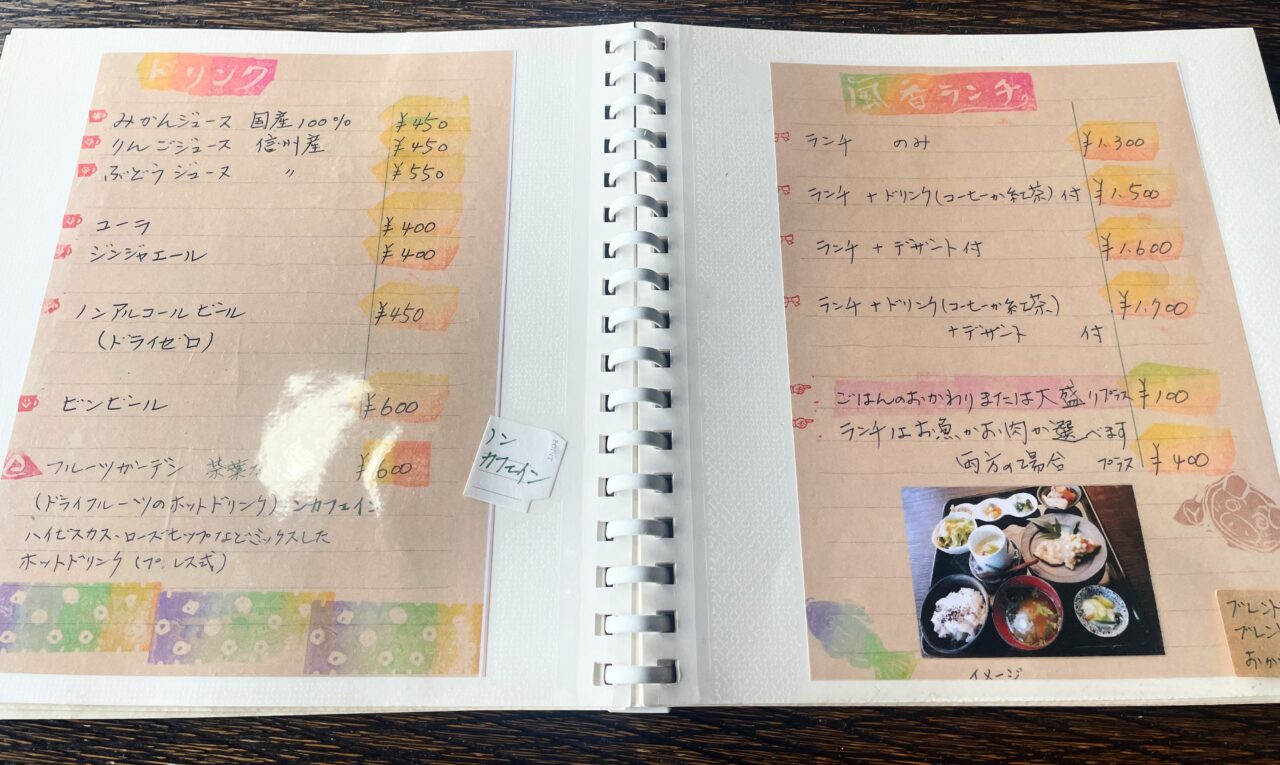 ドリンク
みかんジュース 国産100% ¥450
りんごジュース 信州産 ¥450
ぶどうジュース 〃 ¥550
コーラ ¥400
ジンジャエール ¥400
ノンアルコールビール ¥450
(ドライゼロ)
ビンビール ¥600
フルーツガーデン 茶葉 ¥600
(ドライフルーツのホットドリンク) ンカフェイン
ハイビスカス・ローズヒップなどミックスした
ホットドリンク(プレス式)
ノン
カフェイン
風香ランチ
ランチ のみ ¥1.300
ランチ + ドリンク(コーヒーか紅茶) 付 ¥1.500
ランチ + デザート付 ¥1.600
ランチ + ドリンク(コーヒーか紅茶) ¥1.700
+デザート 付
ごはんのおかわりまたは大盛りプラス ¥100
ランチはお魚かお肉が選べます
両方の場合 プラス ¥400
イメージ
ブレンド
ブレン
おか